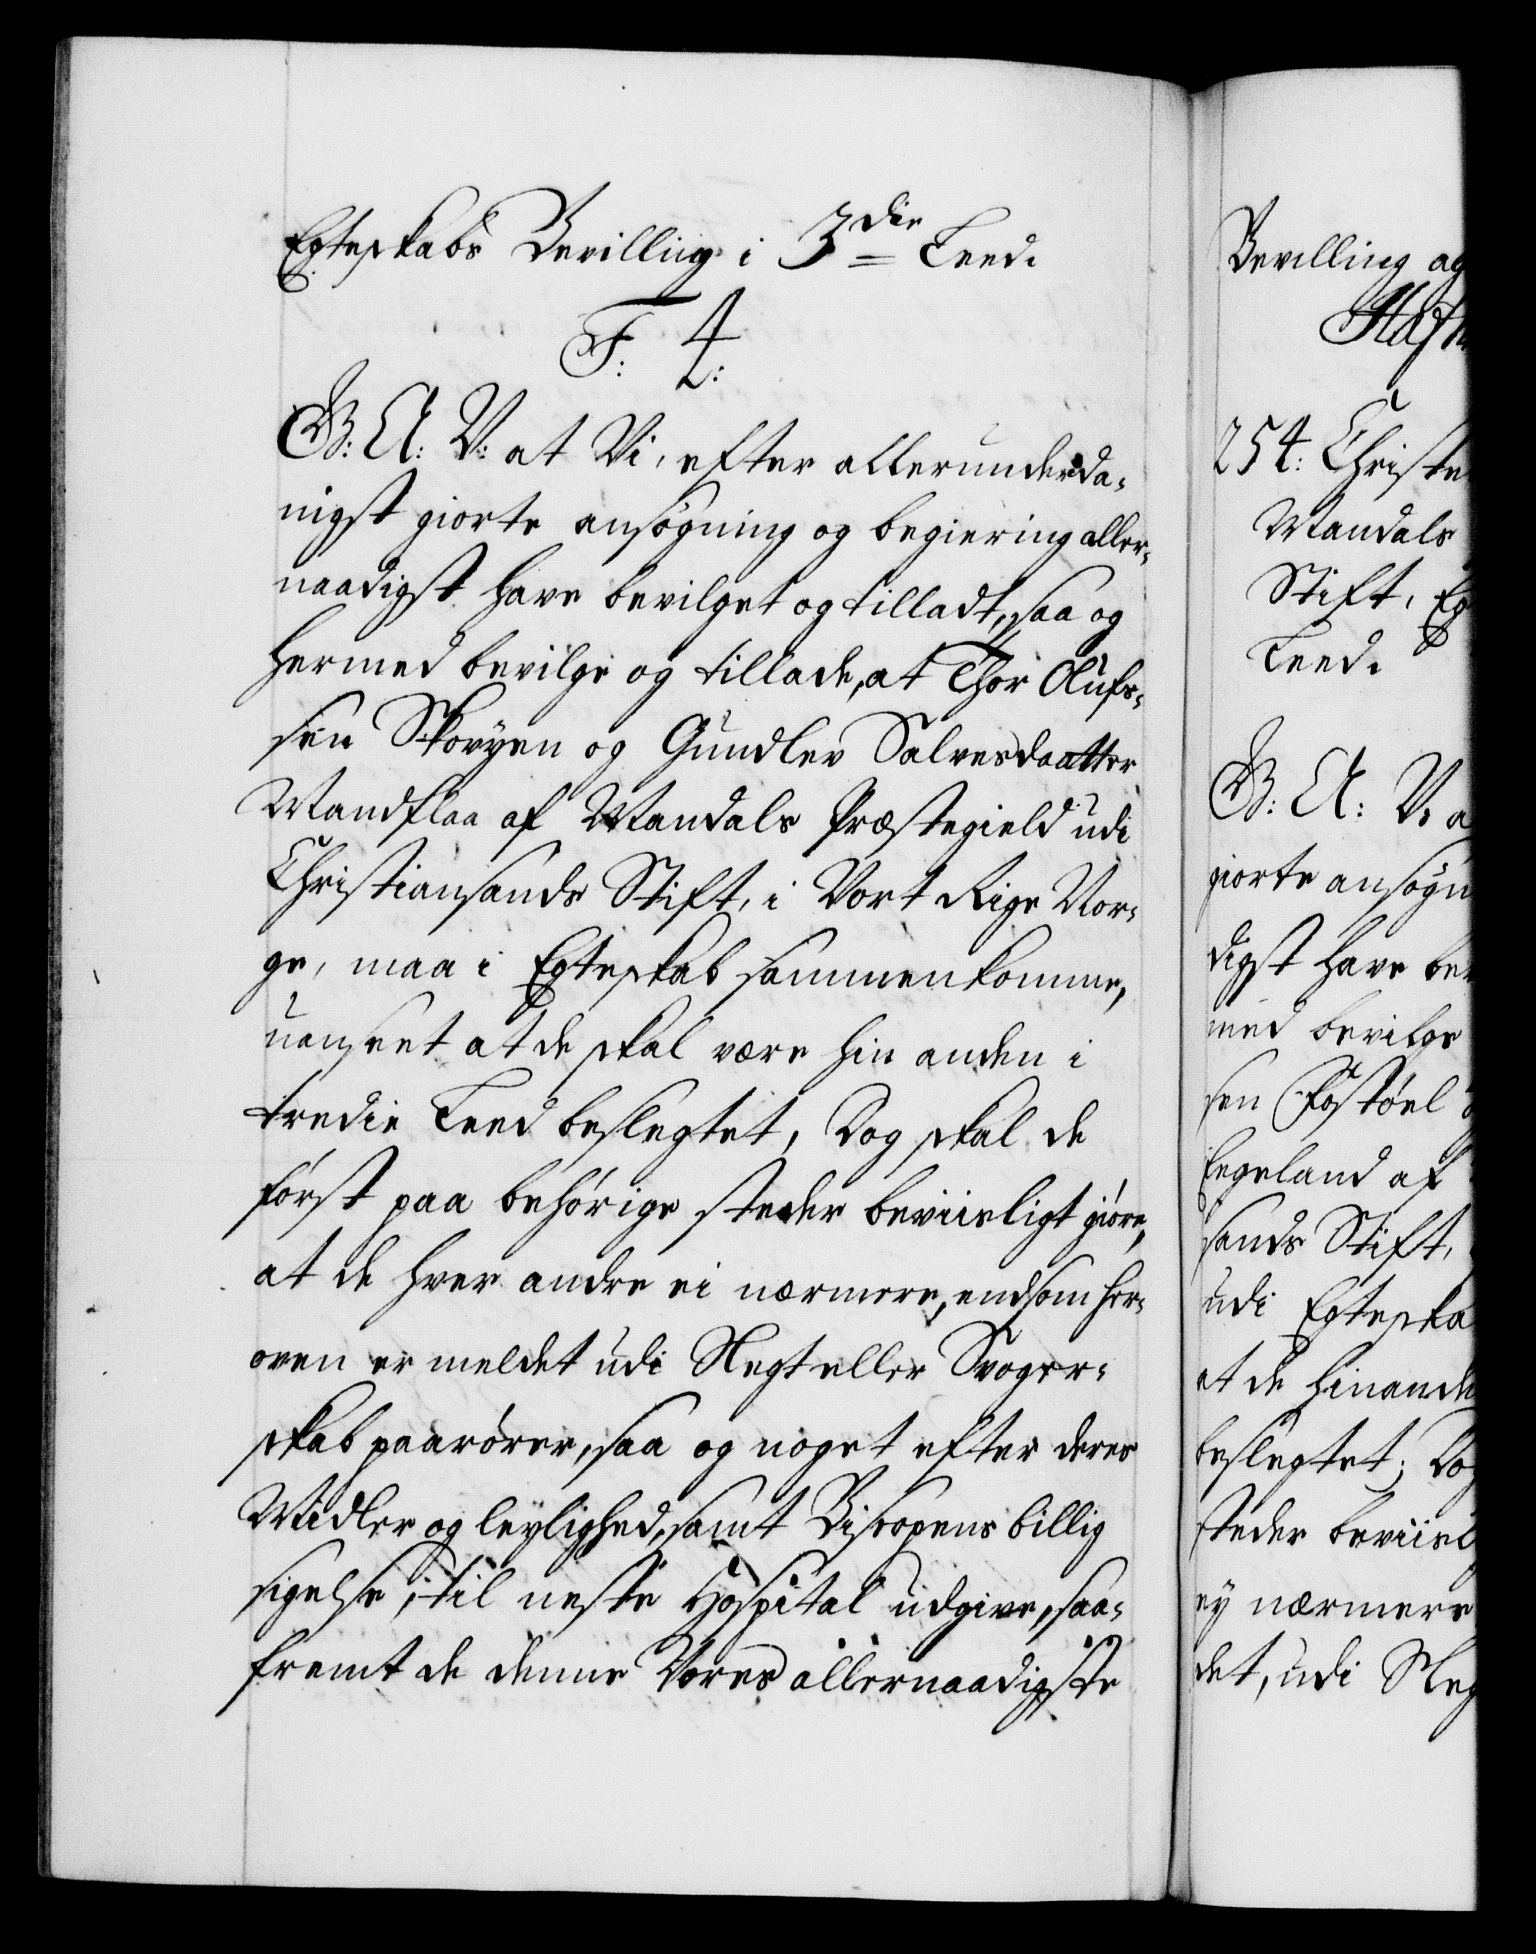 Egteskabs Bevilling i 3die Leed.
F: 4:
G: A: V: at Vi, efter allerunderda-
nigst giorte ansøgning og begiering aller-
naadigst have bevilget og tilladt, saa og
hermed bevilge og tillade, at Thor Olufs-
sen Skoryen og Gundlev Salvesdaatter
Mandflaa af Mandals Præstegield udi
Christiansands Stift, i Vort Rige Nor-
ge, maa i Egteskab sammenkomme,
uanseet at de skal være hin anden i
tredie Leed beslegtet, Dog skal de
først paa behørige steder beviisligt giøre,
at de hver andre ei nærmere, end som her-
oven er meldet udi Slegt eller Svoger-
skab paarører, saa og noget efter deres
Midler og leylighed, samt Biscopens billig
sigelse, til neste Hospital udgive, saa-
fremt de denne Vores allernaadigste
Bevilling og
Hafn
254: Christe
Mandals
Stift, Eg
Leed.
G: A: V: a
giorte ansøgn
digst have bev
med bevilge
sen Fostøel
Eegeland af
sands Stift,
udi Egteska
at de hinande
beslegtet; Dog
steder beviisl
ey nærmere
det, udi Sleg